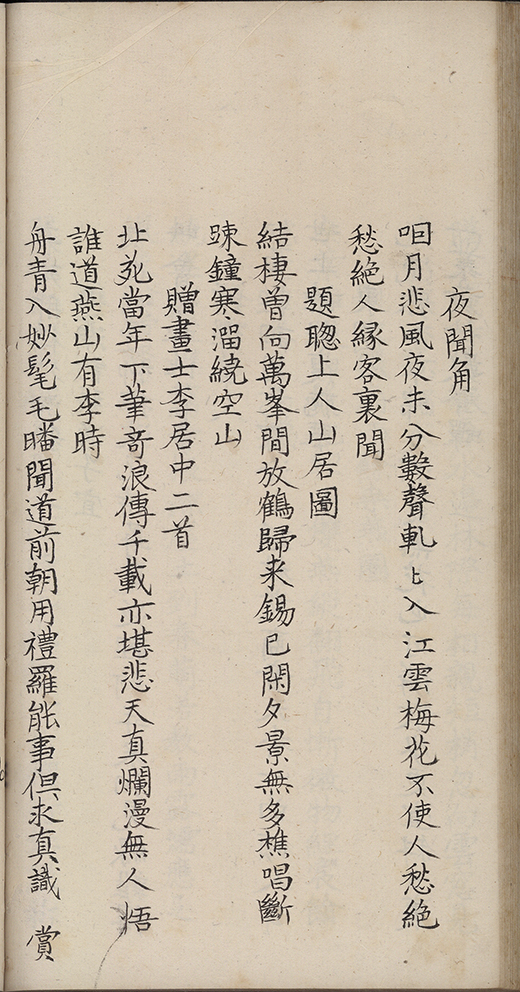 夜聞角
咱月悲風夜未分數聲軋〻入江雲梅花不使人愁絕
愁絕人緣客裏聞
題聦上人山居圖
結棲曾向萬峯間放鶴歸来錫已閑夕景無多樵唱斷
踈鐘寒溜繞空山
贈畫士李居中二首
北苑當年下筆竒浪傳千載亦堪悲天真爛漫無人悟
誰道燕山有李時
舟青入妙髦毛皤聞道前朝用禮羅能事但求真識賞